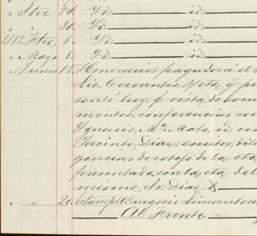 " Stre 24. Yd id
" " 30. Yd id
1882. Fbro 8. Yd id
" Mayo 8. Yd id
" Junio 12. Honorarios pagados á el s
Lic. Cervantes,
sentó hoy, p. vista de docu
mentos, conferencias con
Ygnacio, Mª Malo, id con
Jacinto Diaz; escritos, dili
gencias de cotejo de la cta
presentada con la cta. del
mismo Sr. Diaz
" " 20.
Al Frente